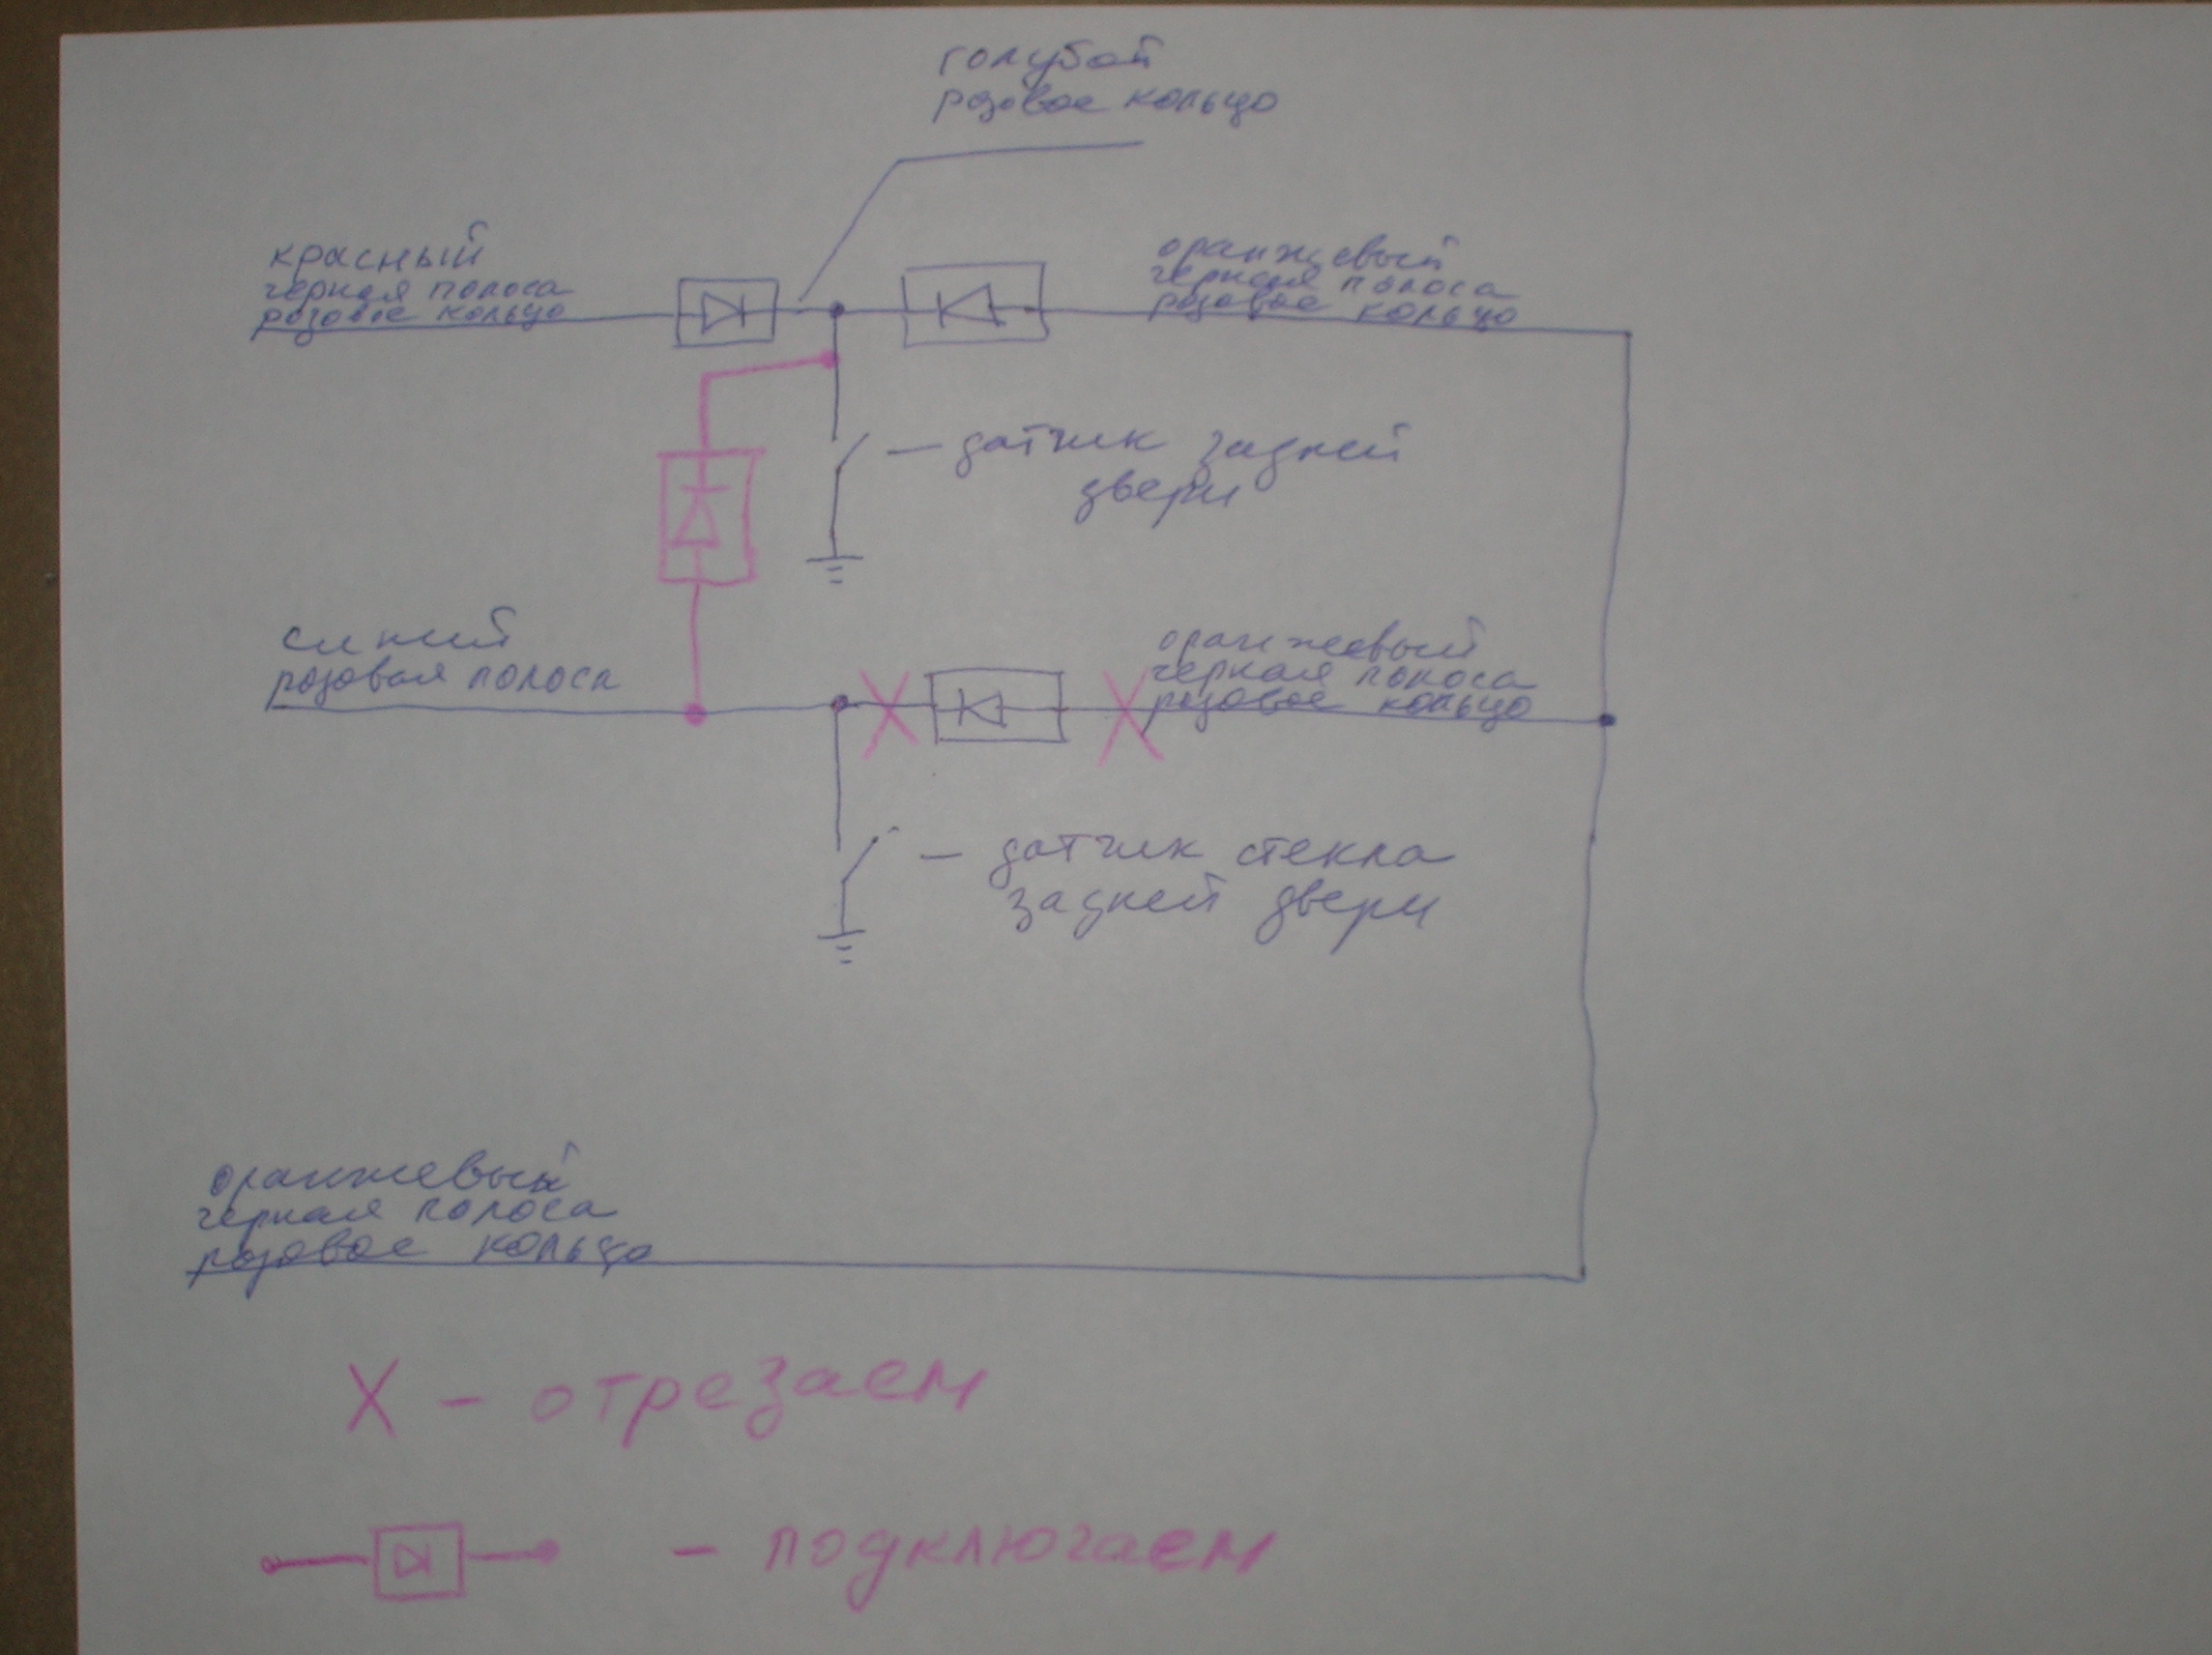 голубой
розовое кольцо
красный
черная полоса
розовое кольцо
оранжевый
черная полоса
розовое кольцо
— датчик задней
двери
синий
розовая полоса
оранжевый
черная полоса
розовое кольцо
— датчик стекла
задней двери
оранжевый
черная полоса
розовое кольцо
X - отрезаем
- подключаем